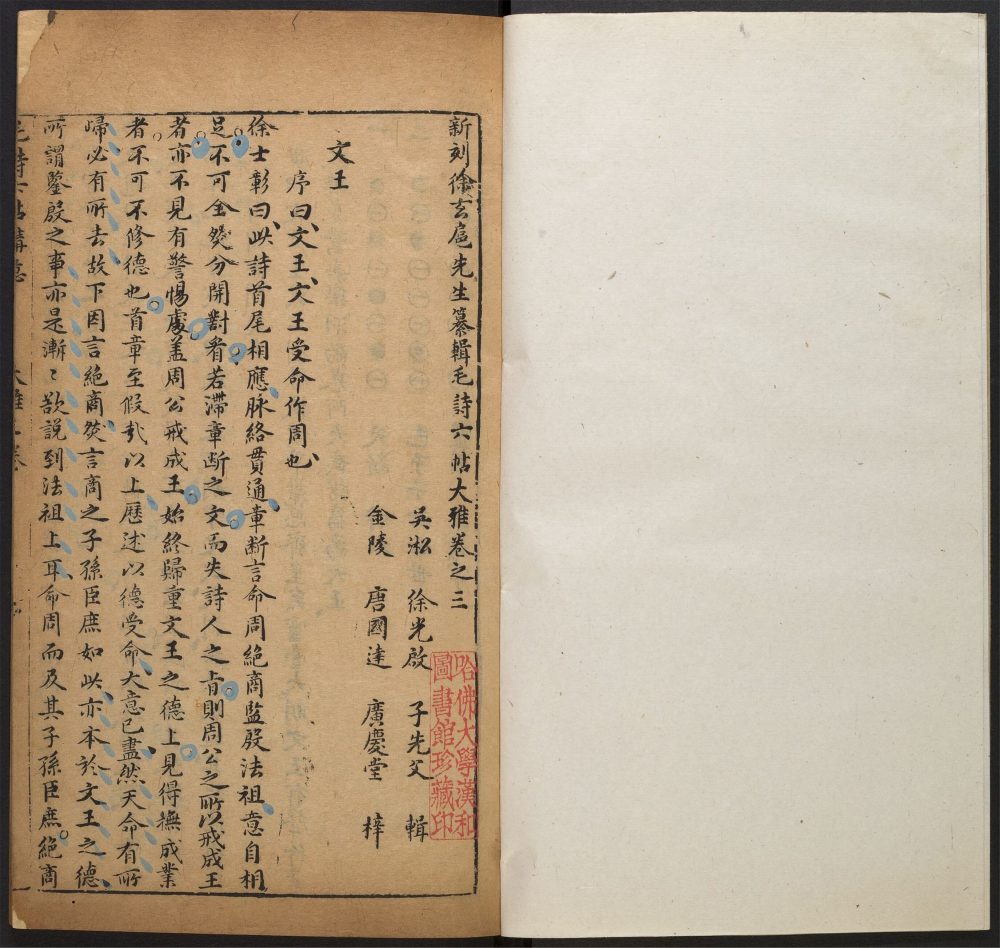 新刻徐玄扈先生纂輯毛詩六帖大雅卷之三
吳淞 徐光啟 子先父 輯
金陵 唐國達 廣慶堂 梓
文王
序曰文王文王受命作周也
徐士彰曰此詩首尾相應脉絡貫通章断言命周絶商監殷法祖意自相
足不可全然分開對看若滞章断之文而失詩人之旨則周公之所以戒成王
者亦不見有警惕處盖周公戒成王始終歸重文王之德上見得撫成業
者不可不修德也首章至假㦲以上歷述以德受命大意已盡然天命有所
帰必有所去故下因言絶商㷼言商之子孫臣庶如此亦本於文王之德
所謂鑒殷之事亦是漸〻欲説到法祖上耳命周而及其子孫臣庶絶商
毛詩六帖講意 大雅三卷 一
哈佛大學漢和
圖書館珍藏印